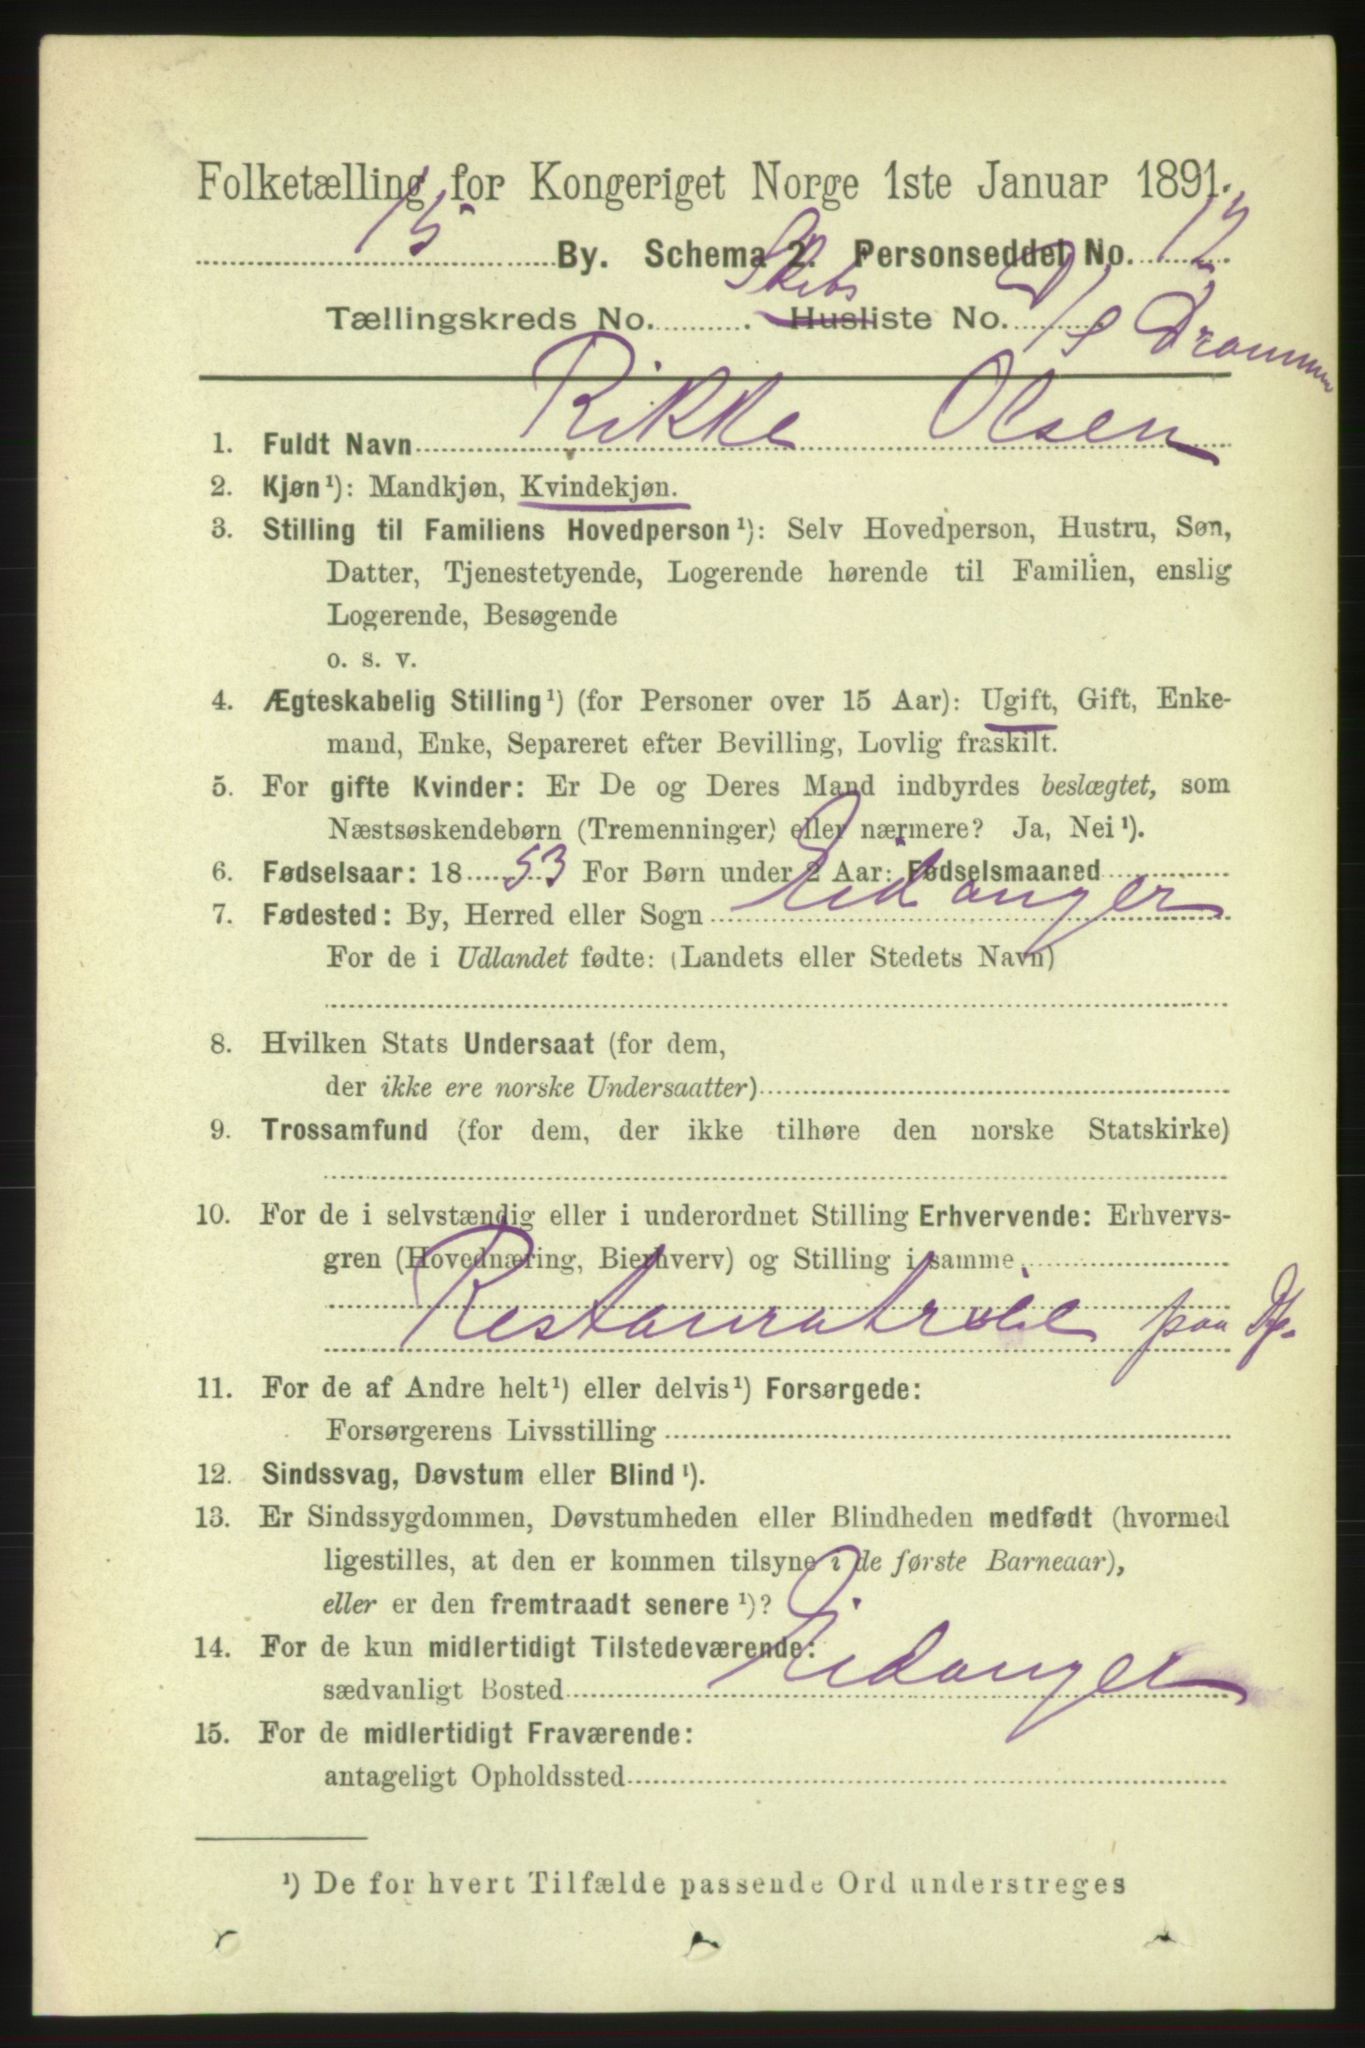 Folketælling for Kongeriget Norge 1ste Januar 1891.
15 By. Schema 2. Personseddel No. 12
Skibs
Tællingskreds No. . Husliste No. D/S Drammen
1. Fuldt Navn Rikke Olsen
2. Kjøn¹): Mandkjøn, Kvindekjøn.
3. Stilling til Familiens Hovedperson¹): Selv Hovedperson, Hustru, Søn,
Datter, Tjenestetyende, Logerende hørende til Familien, enslig
Logerende, Besøgende
o. s. v.
4. Ægteskabelig Stilling¹) (for Personer over 15 Aar): Ugift, Gift, Enke-
mand, Enke, Separeret efter Bevilling, Lovlig fraskilt.
5. For gifte Kvinder: Er De og Deres Mand indbyrdes beslægtet, som
Næstsøskendebørn (Tremenninger) eller nærmere? Ja, Nei¹).
6. Fødselsaar: 18 53 For Børn under 2 Aar: Fødselsmaaned
7. Fødested: By, Herred eller Sogn Eidanger
For de i Udlandet fødte: (Landets eller Stedets Navn)
8. Hvilken Stats Undersaat (for dem,
der ikke ere norske Undersaatter)
9. Trossamfund (for dem, der ikke tilhøre den norske Statskirke)
10. For de i selvstændig eller i underordnet Stilling Erhvervende: Erhvervs-
gren (Hovednæring, Bierhverv) og Stilling i samme
Restauratrice paa Dsk.
11. For de af Andre helt¹) eller delvis¹) Forsørgede:
Forsørgerens Livsstilling
12. Sindssvag, Døvstum eller Blind¹).
13. Er Sindssygdommen, Døvstumheden eller Blindheden medfødt (hvormed
ligestilles, at den er kommen tilsyne i de første Barneaar),
eller er den fremtraadt senere¹)?
14. For de kun midlertidigt Tilstedeværende:
sædvanligt Bosted Eidanger
15. For de midlertidigt Fraværende:
antageligt Opholdssted
¹) De for hvert Tilfælde passende Ord understreges